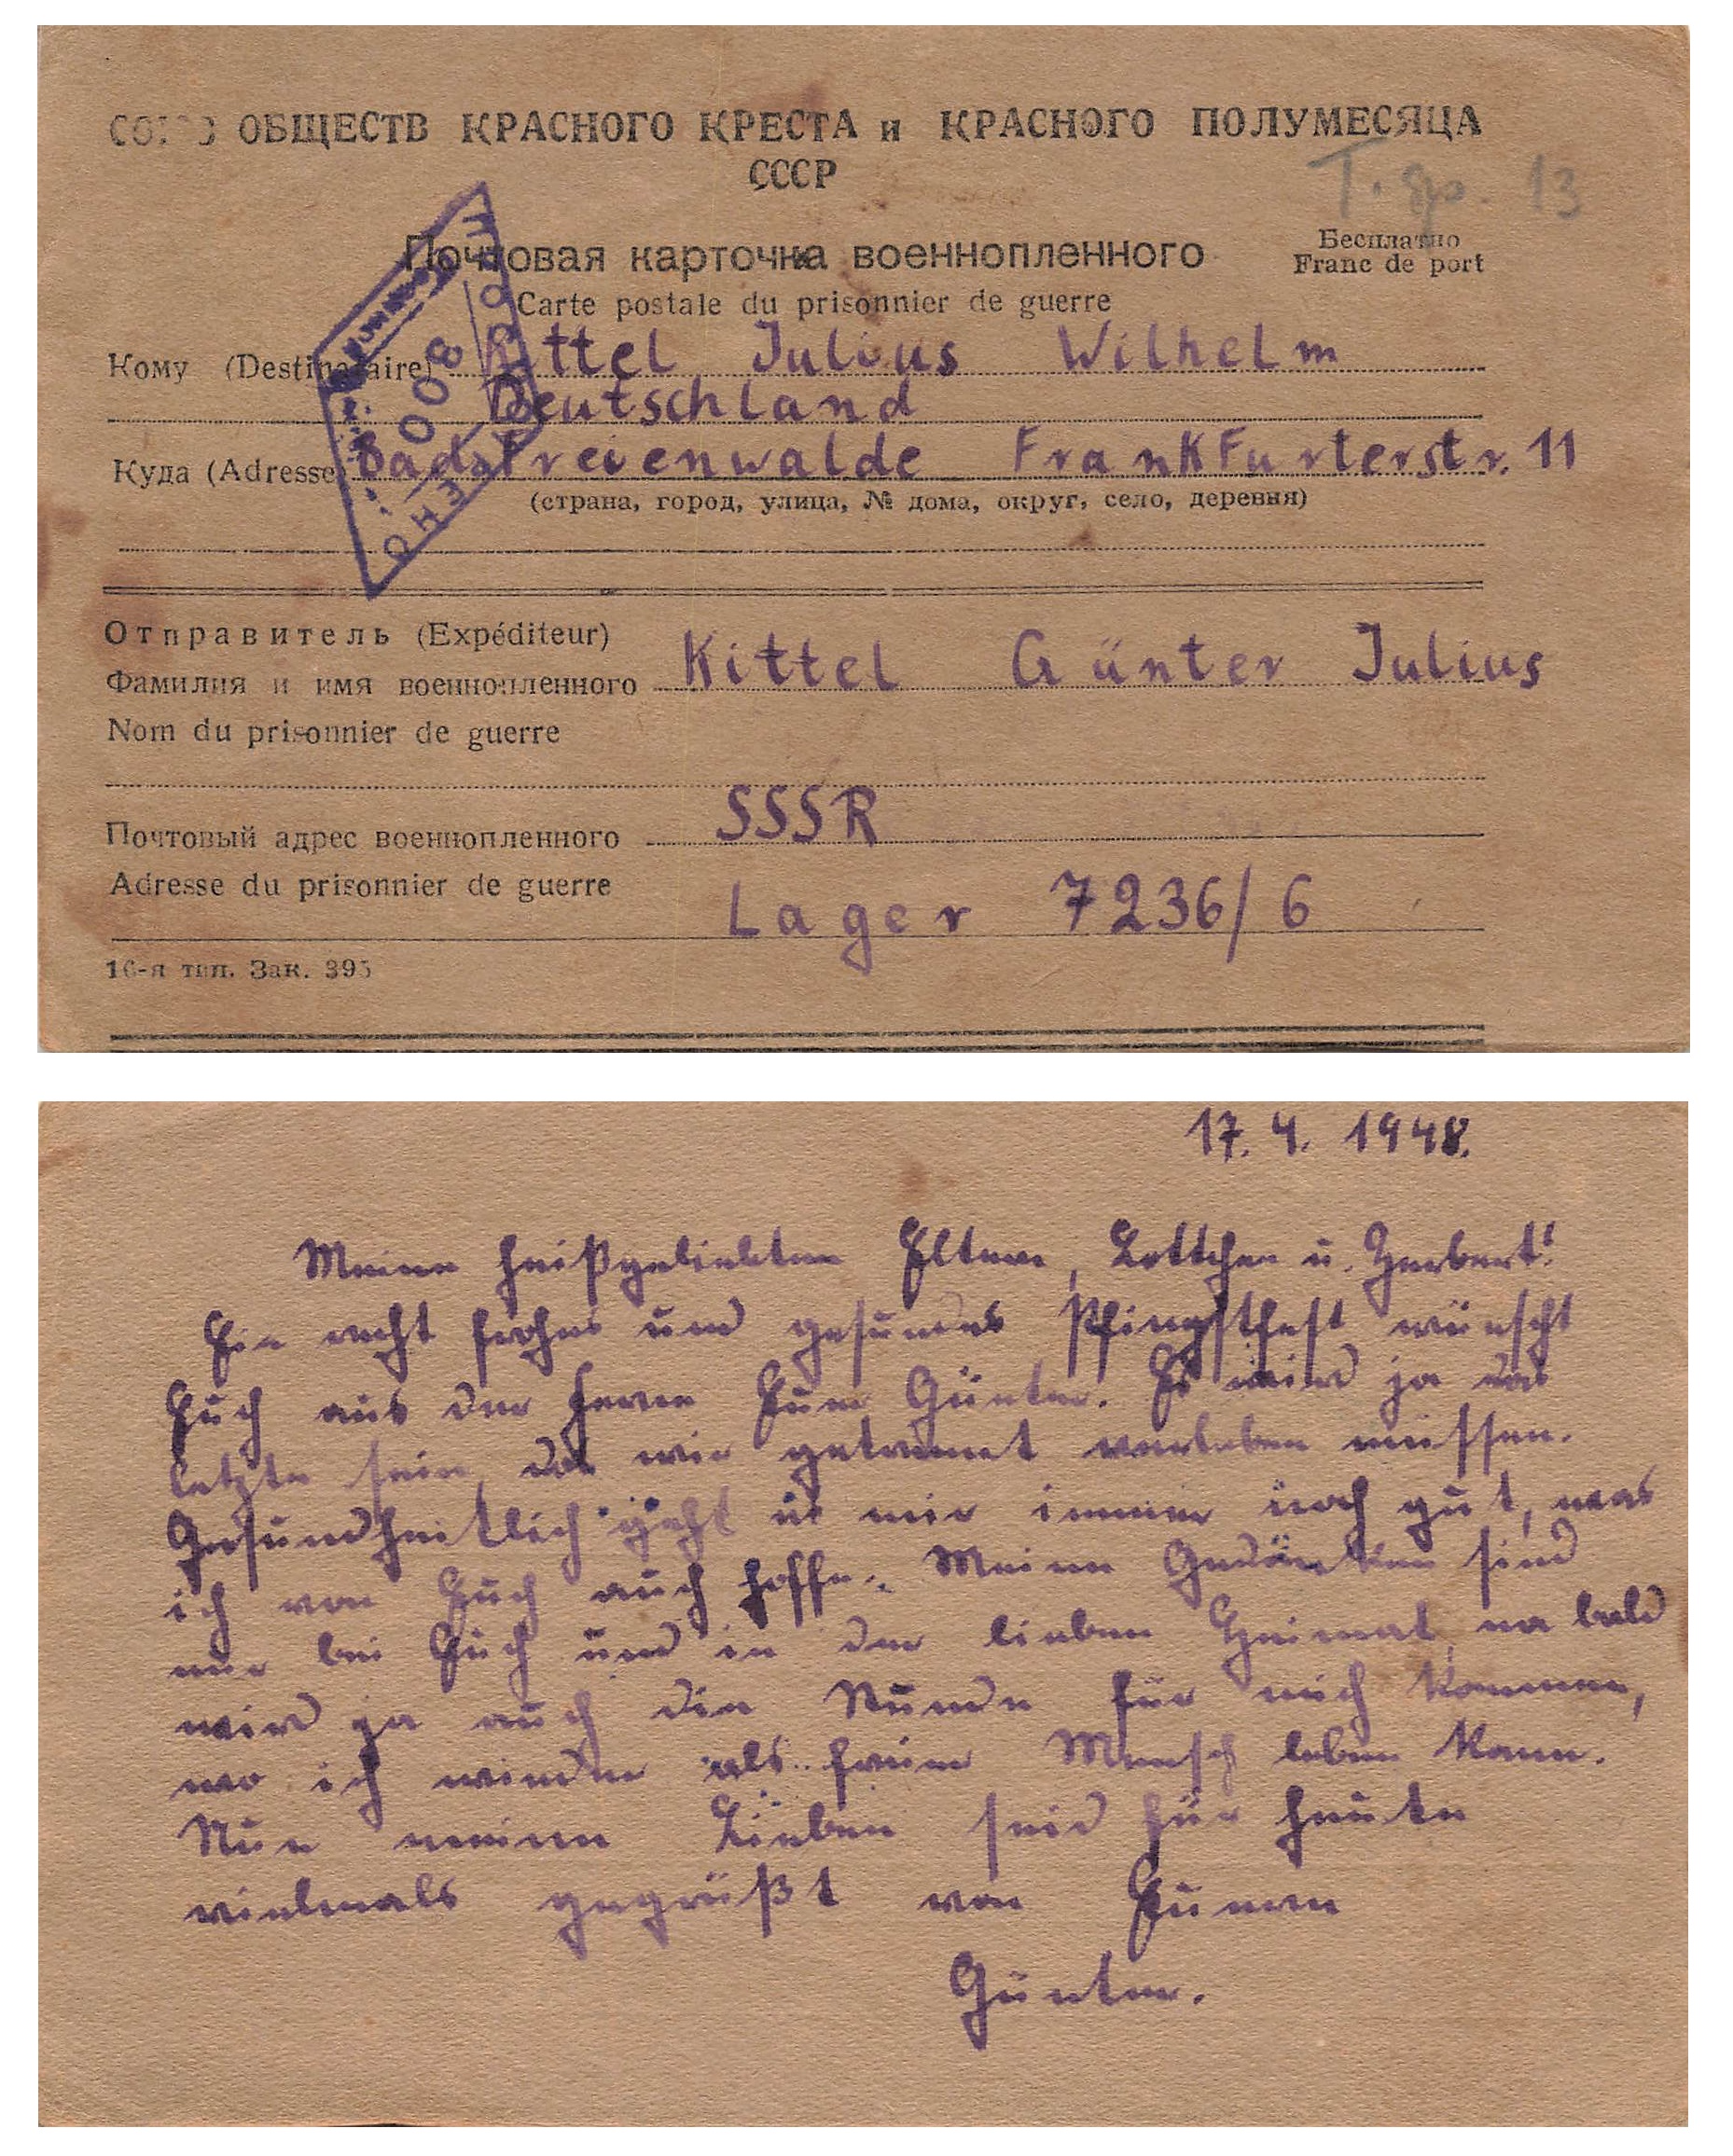 СОЮЗ ОБЩЕСТВ КРАСНОГО КРЕСТА и КРАСНОГО ПОЛУМЕСЯЦА
СССР
T. 13
Почтовая карточка военнопленного
Бесплатно
Carte postale du prisonnier de guerre
Franc de port
Кому (Destinataire) Kittel Julius Wilhelm
Deutschland
Куда (Adresse) Bad Freienwalde Frankfurterstr. 11
(страна, город, улица, № дома, округ, село, деревня)
800
Отправитель (Expéditeur)
Фамилия и имя военнопленного Kittel Günter Julius
Nom du prisonnier de guerre
Почтовый адрес военнопленного SSSR
Adresse du prisonnier de guerre
Lager 7236/6
16-я тип. Зак. 395
17.4.1948.
Meine heißgeliebten Eltern, Lottchen u. Herbert!
Ein recht frohes und gesundes Pfingstfest wünscht
Euch aus der Ferne Euer Günter. Es wird ja das
letzte sein, das wir getrennt verleben müssen.
Gesundheitlich geht es mir immer noch gut, was
ich von Euch auch hoffe. Meine Gedanken sind
nur bei Euch und in der lieben Heimat, na bald
wird ja auch die Stunde für mich kommen,
wo ich wieder als freier Mensch leben kann.
Nun meine Lieben seid für heute
vielmals gegrüßt von Eurem
Günter.